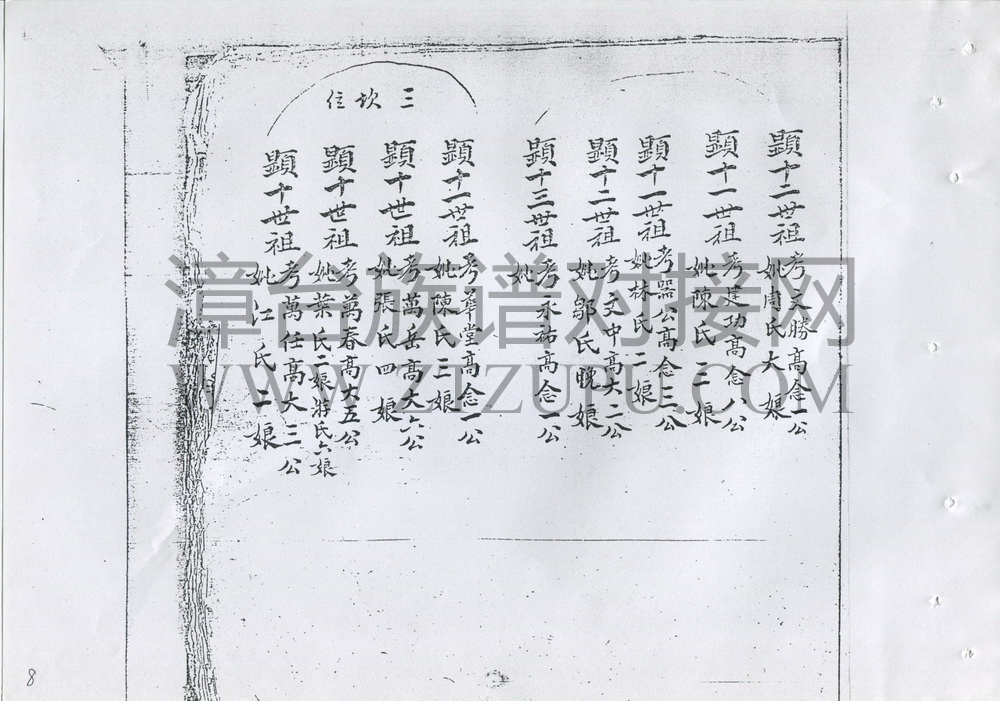 顯十二世祖
考文勝高念一公
妣周氏大娘
顯十一世祖
考建功高念八公
妣陳氏二娘
顯十一世祖
考器公高念三公
妣林氏二娘
顯十二世祖
考文中高大二公
妣鄔氏晚娘
顯十三世祖
考永祐高念一公
妣
三坎位
顯十一世祖
考華堂高念一公
妣陳氏三娘
顯十世祖
考萬岳高大六公
妣張氏四娘
顯十世祖
考萬春高大五公
妣葉氏二娘游氏六娘
顯十世祖
考萬任高大三公
妣江氏二娘
漳台族谱对接网
WWW.ZTZUPU.COM
8